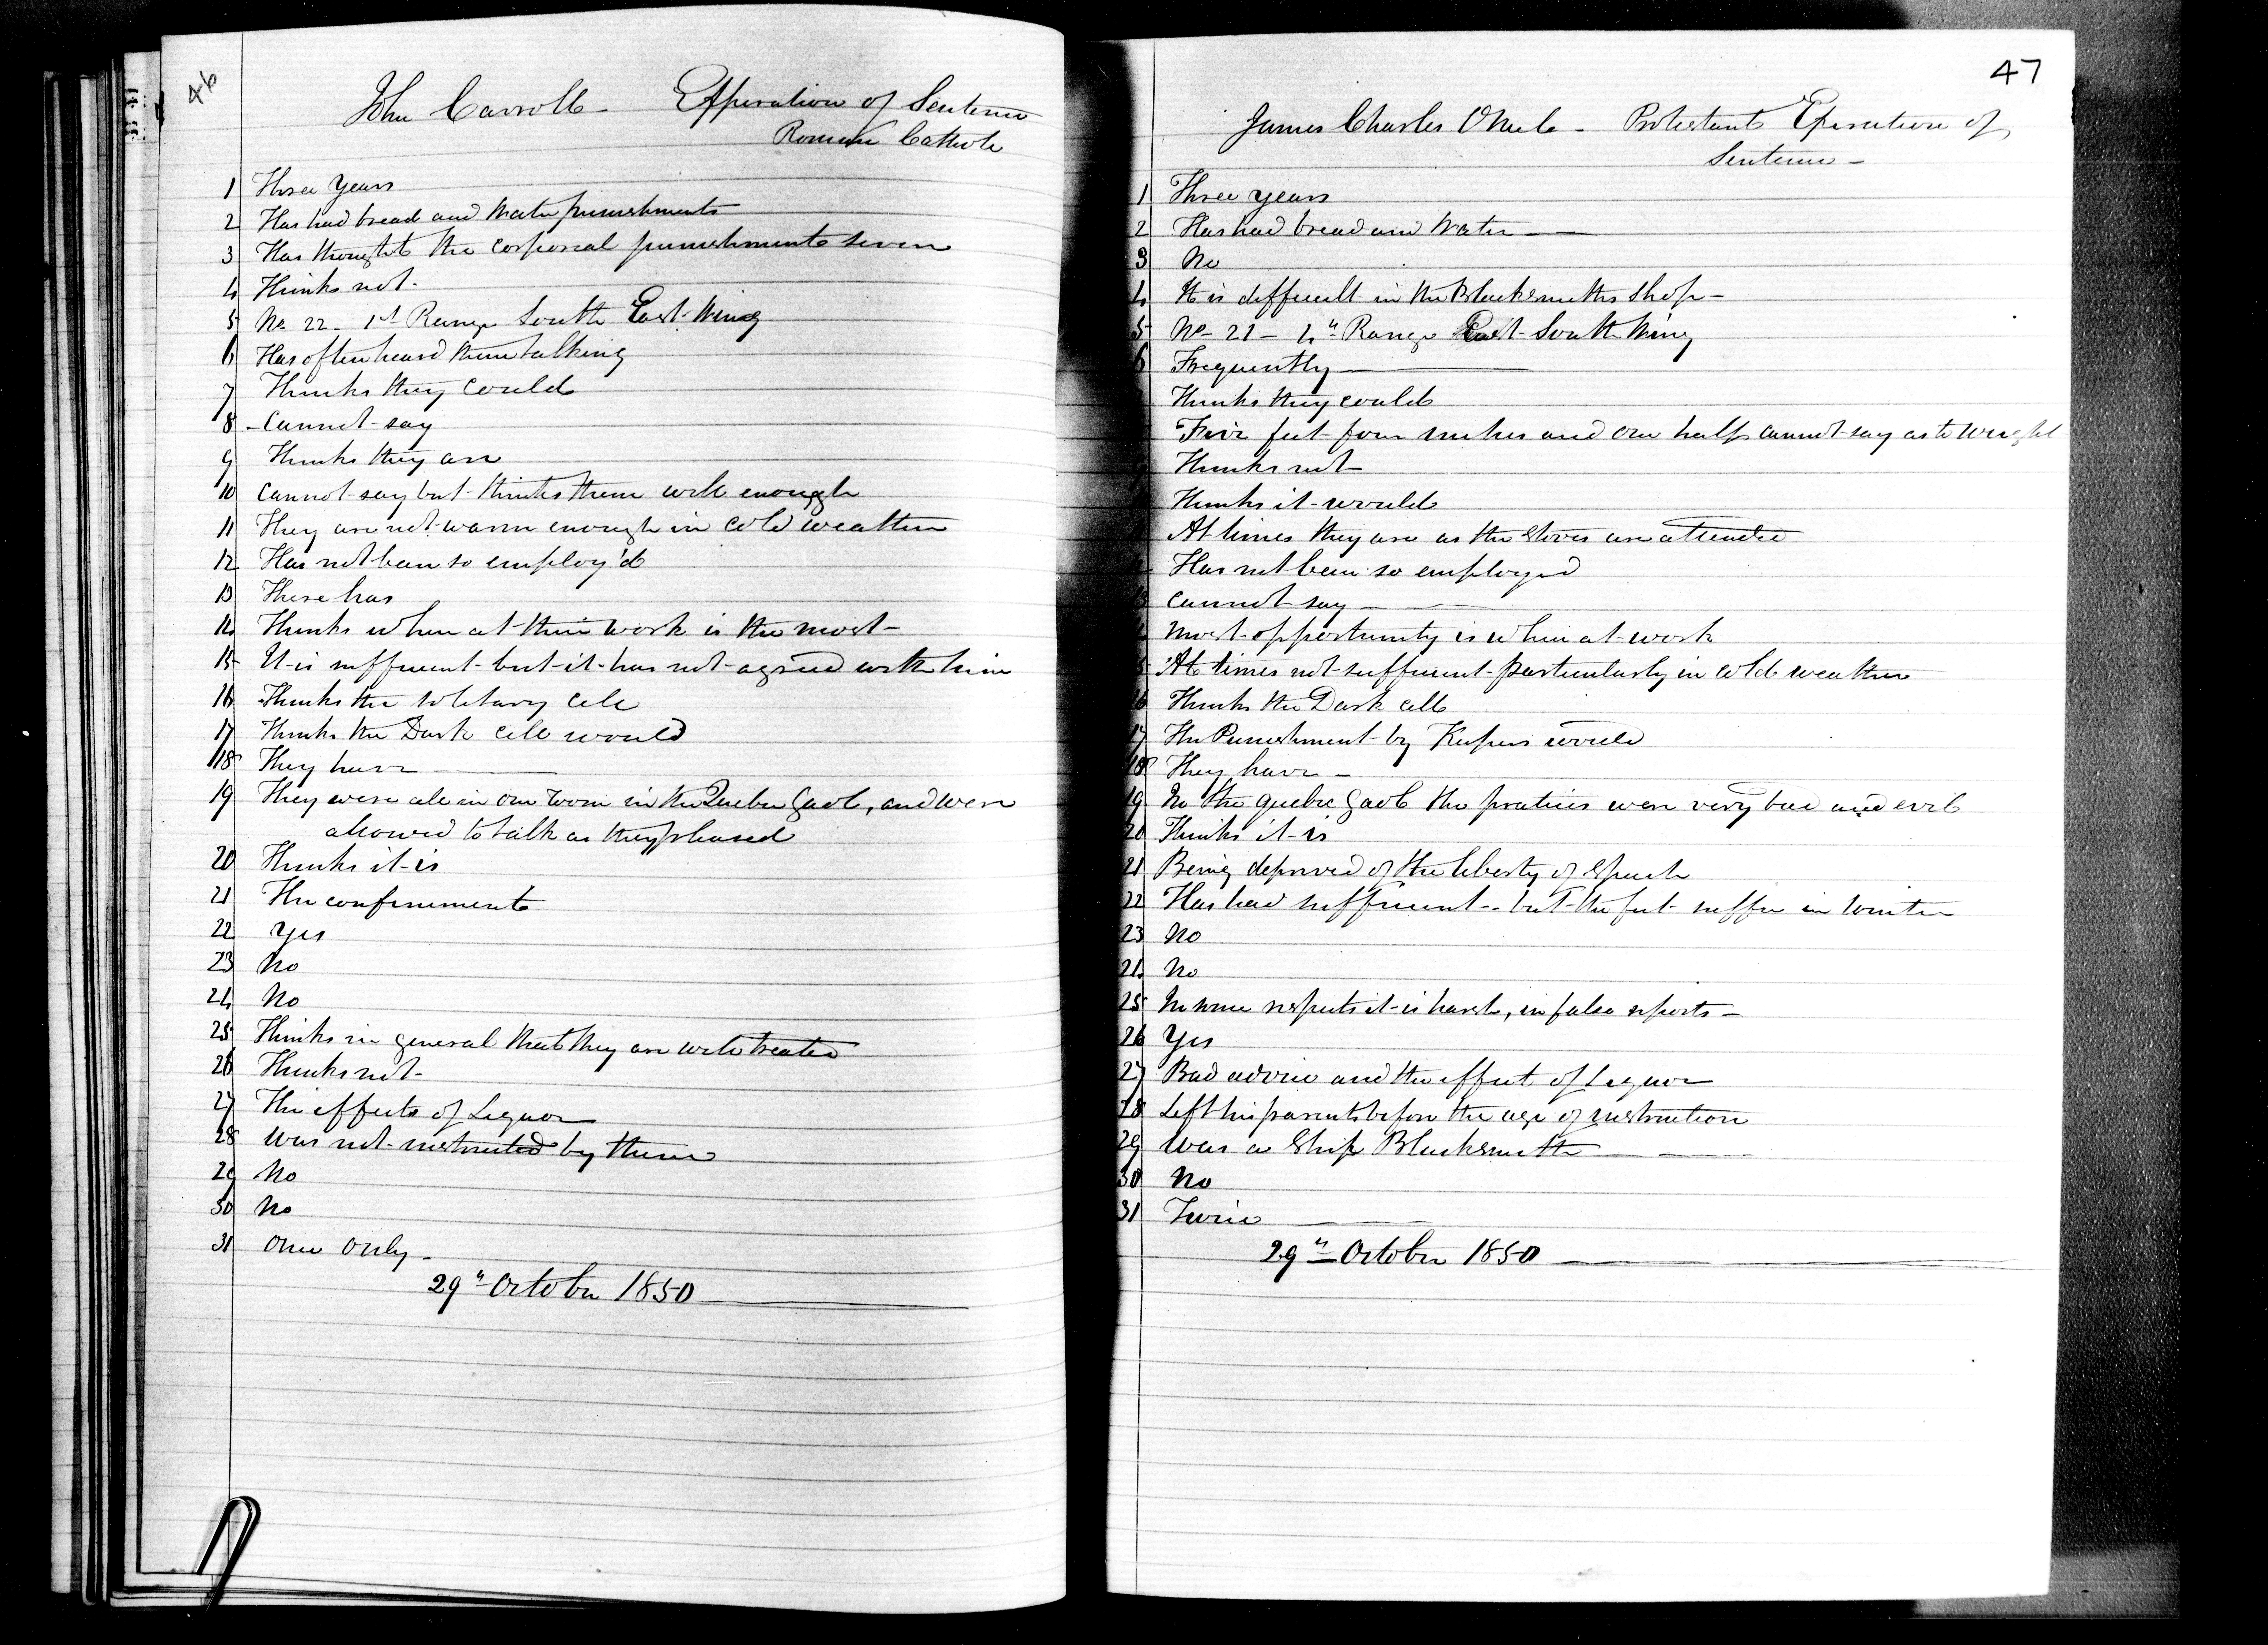 46
John Carroll - Expiration of Sentence
Roman Catholic
1 Three Years
2 Has had bread and water punishments
3 Has thought the corporeal punishments severe
4 Thinks not -
5 No 22 - 1st Range South East Wing
6 Has often heard them talking
7 Thinks they could
8 - Cannot say
9 Thinks they are
10 Cannot say but thinks them well enough
11 They are not warm enough in cold weather
12 Has not been so employ'd
13 There has
14 Thinks when at their work is the most -
15 It is sufficient but it has not agreed with him
16 Thinks the solitary cell
17 Thinks the Dark cell would
18 They have
19 They were all in one room in the Quebec Gaol, and were
allowed to talk as they pleased
20 Thinks it is
21 The confinement
22 Yes
23 No
24 No
25 Thinks in general that they are well treated
26 Thinks not -
27 The effects of Liquor
28 Was not instructed by them
29 No
30 No
31 Once only -
29th October 1850
47
James Charles ONeil - Protestant Expiration of
Sentence -
1 Three years
2 Has had bread and water
3 No
4 It is difficult in the Blacksmiths Shop -
5 No 21 - 4th Range East South Wing
6 Frequently
Thinks they could
Five feet four inches and one half cannot say as to weight
Thinks not
Thinks it would
At times they are as the stoves are attended
Has not been so employed
Cannot say -
Most opportunity is when at work
5 At times not sufficient particularly in cold weather
6 Thinks the Dark cell
17 The Punishment by Keepers would
18 They have -
19 In the Quebec Gaol the practices were very bad and evil
20 Thinks it is
21 Being deprived of the liberty of speech
22 Has had sufficient - but the feet suffer in winter
23 No
24 No
25 In some respects it is harsh, in false reports -
26 Yes
27 Bad advice and the effect of Liquor
28 Left his parents before the age of instruction
29 Was a Ship Blacksmith
30 No
31 Twice
29th October 1850